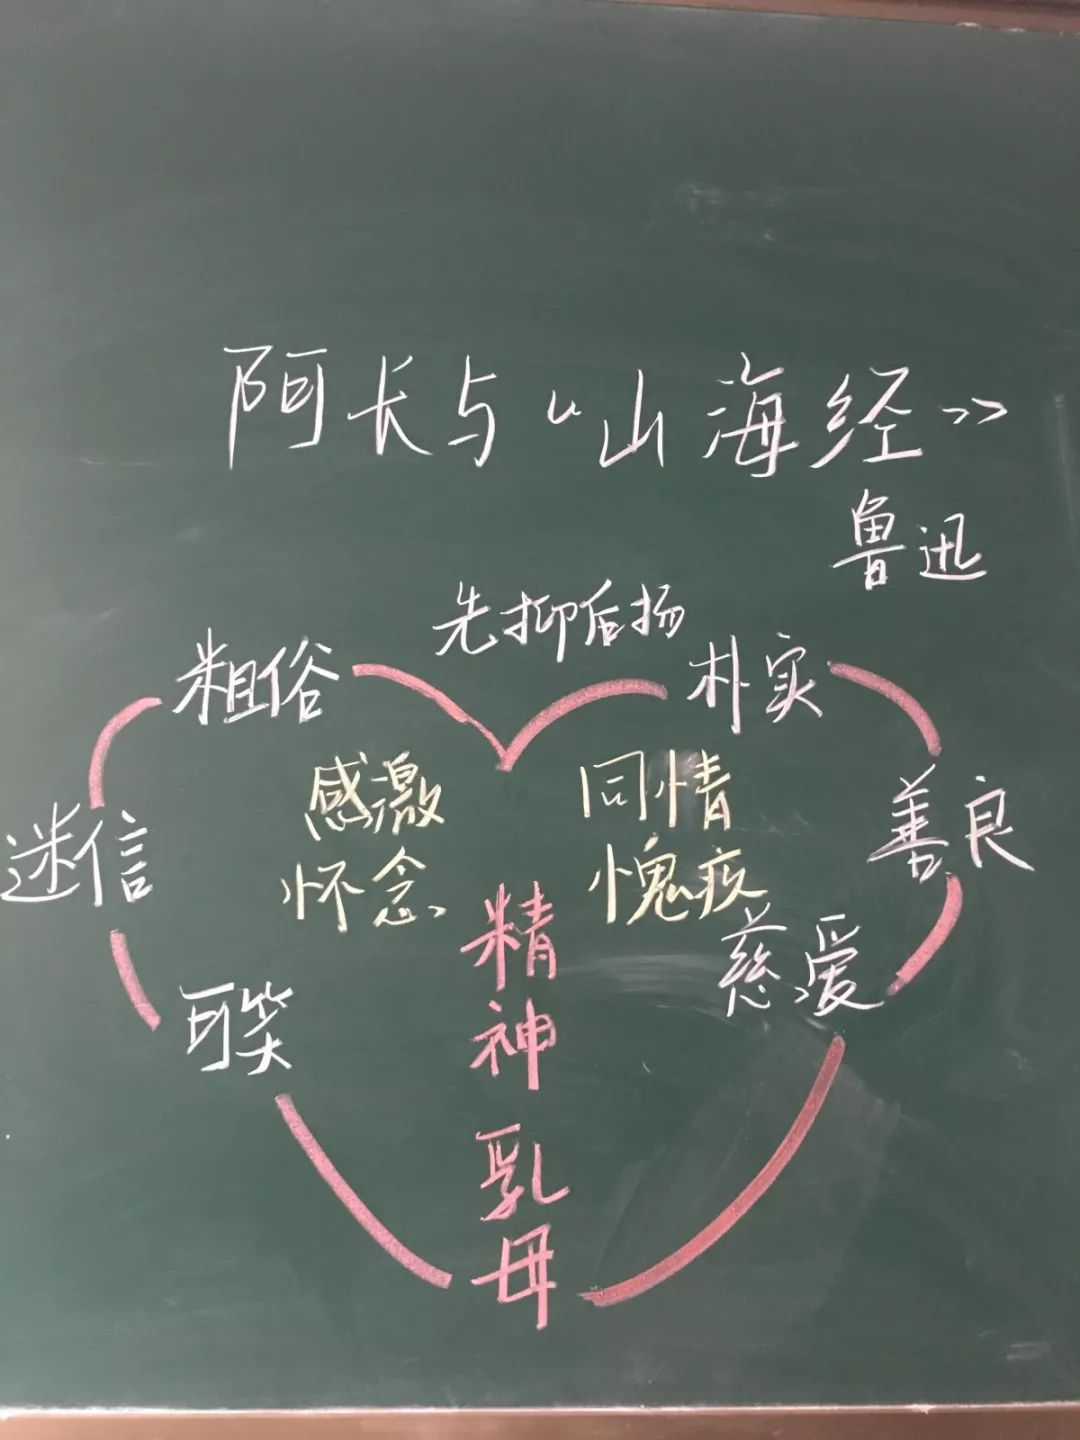 阿长与《山海经》
鲁迅
先抑后扬
粗俗
朴实
迷信
善良
可笑
慈爱
感激
怀念
同情
愧疚
精神
乳母